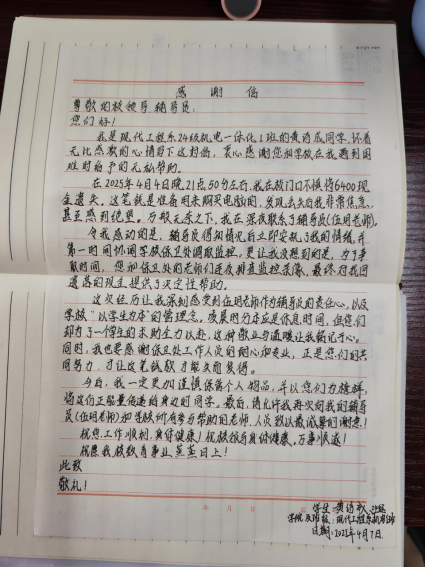 感谢信
尊敬的校领导、辅导员:
您们好!
我是现代工程系24级机电一体化1班的黄诗成同学,怀着
无比感激的心情写下这封信,衷心感谢您和学校在我遇到困
难时给予的无私帮助。
在2025年4月4日晚,21点50分左右,我在校门口不慎将6400现
金遗失,这笔钱是准备用来购买电脑的,发现丢失后我非常焦急,
甚至感到绝望。万般无奈之下,我在深夜联系了辅导员(伍玥老师)。
令我感动的是,辅导员得知情况后立即安抚了我的情绪,并
第一时间协调学校保卫处调取监控。更让我没想到的是,为了争
取时间,您和保卫处的老师们连夜排查监控录像,最终为找回
遗落的现金提供了决定性帮助。
这次经历让我深刻感受到伍玥老师作为辅导员的责任心,以及
学校“以学生为本”的管理理念。凌晨时分本应是休息时间,但您们
却为了一个学生的求助全力以赴,这种敬业与温暖让我铭记于心。
同时,我也要感谢保卫处工作人员的耐心和专业,正是您们的共
同努力,才让这笔钱款才能失而复得。
今后,我一定更加谨慎保管个人物品,并以您们为榜样,
将这份正能量传递给身边的同学。最后,请允许我再次向我的辅导
员(伍玥老师)和学校所有参与帮助的老师、人员致以最诚挚的谢意!
祝您工作顺利,身体健康!祝校领导身体健康,万事顺遂!
祝愿我校教育事业蒸蒸日上!
此致
敬礼!
年 月 日
学生:黄诗成
学院及班级:现代工程系机电1班
日期:2025年4月7日